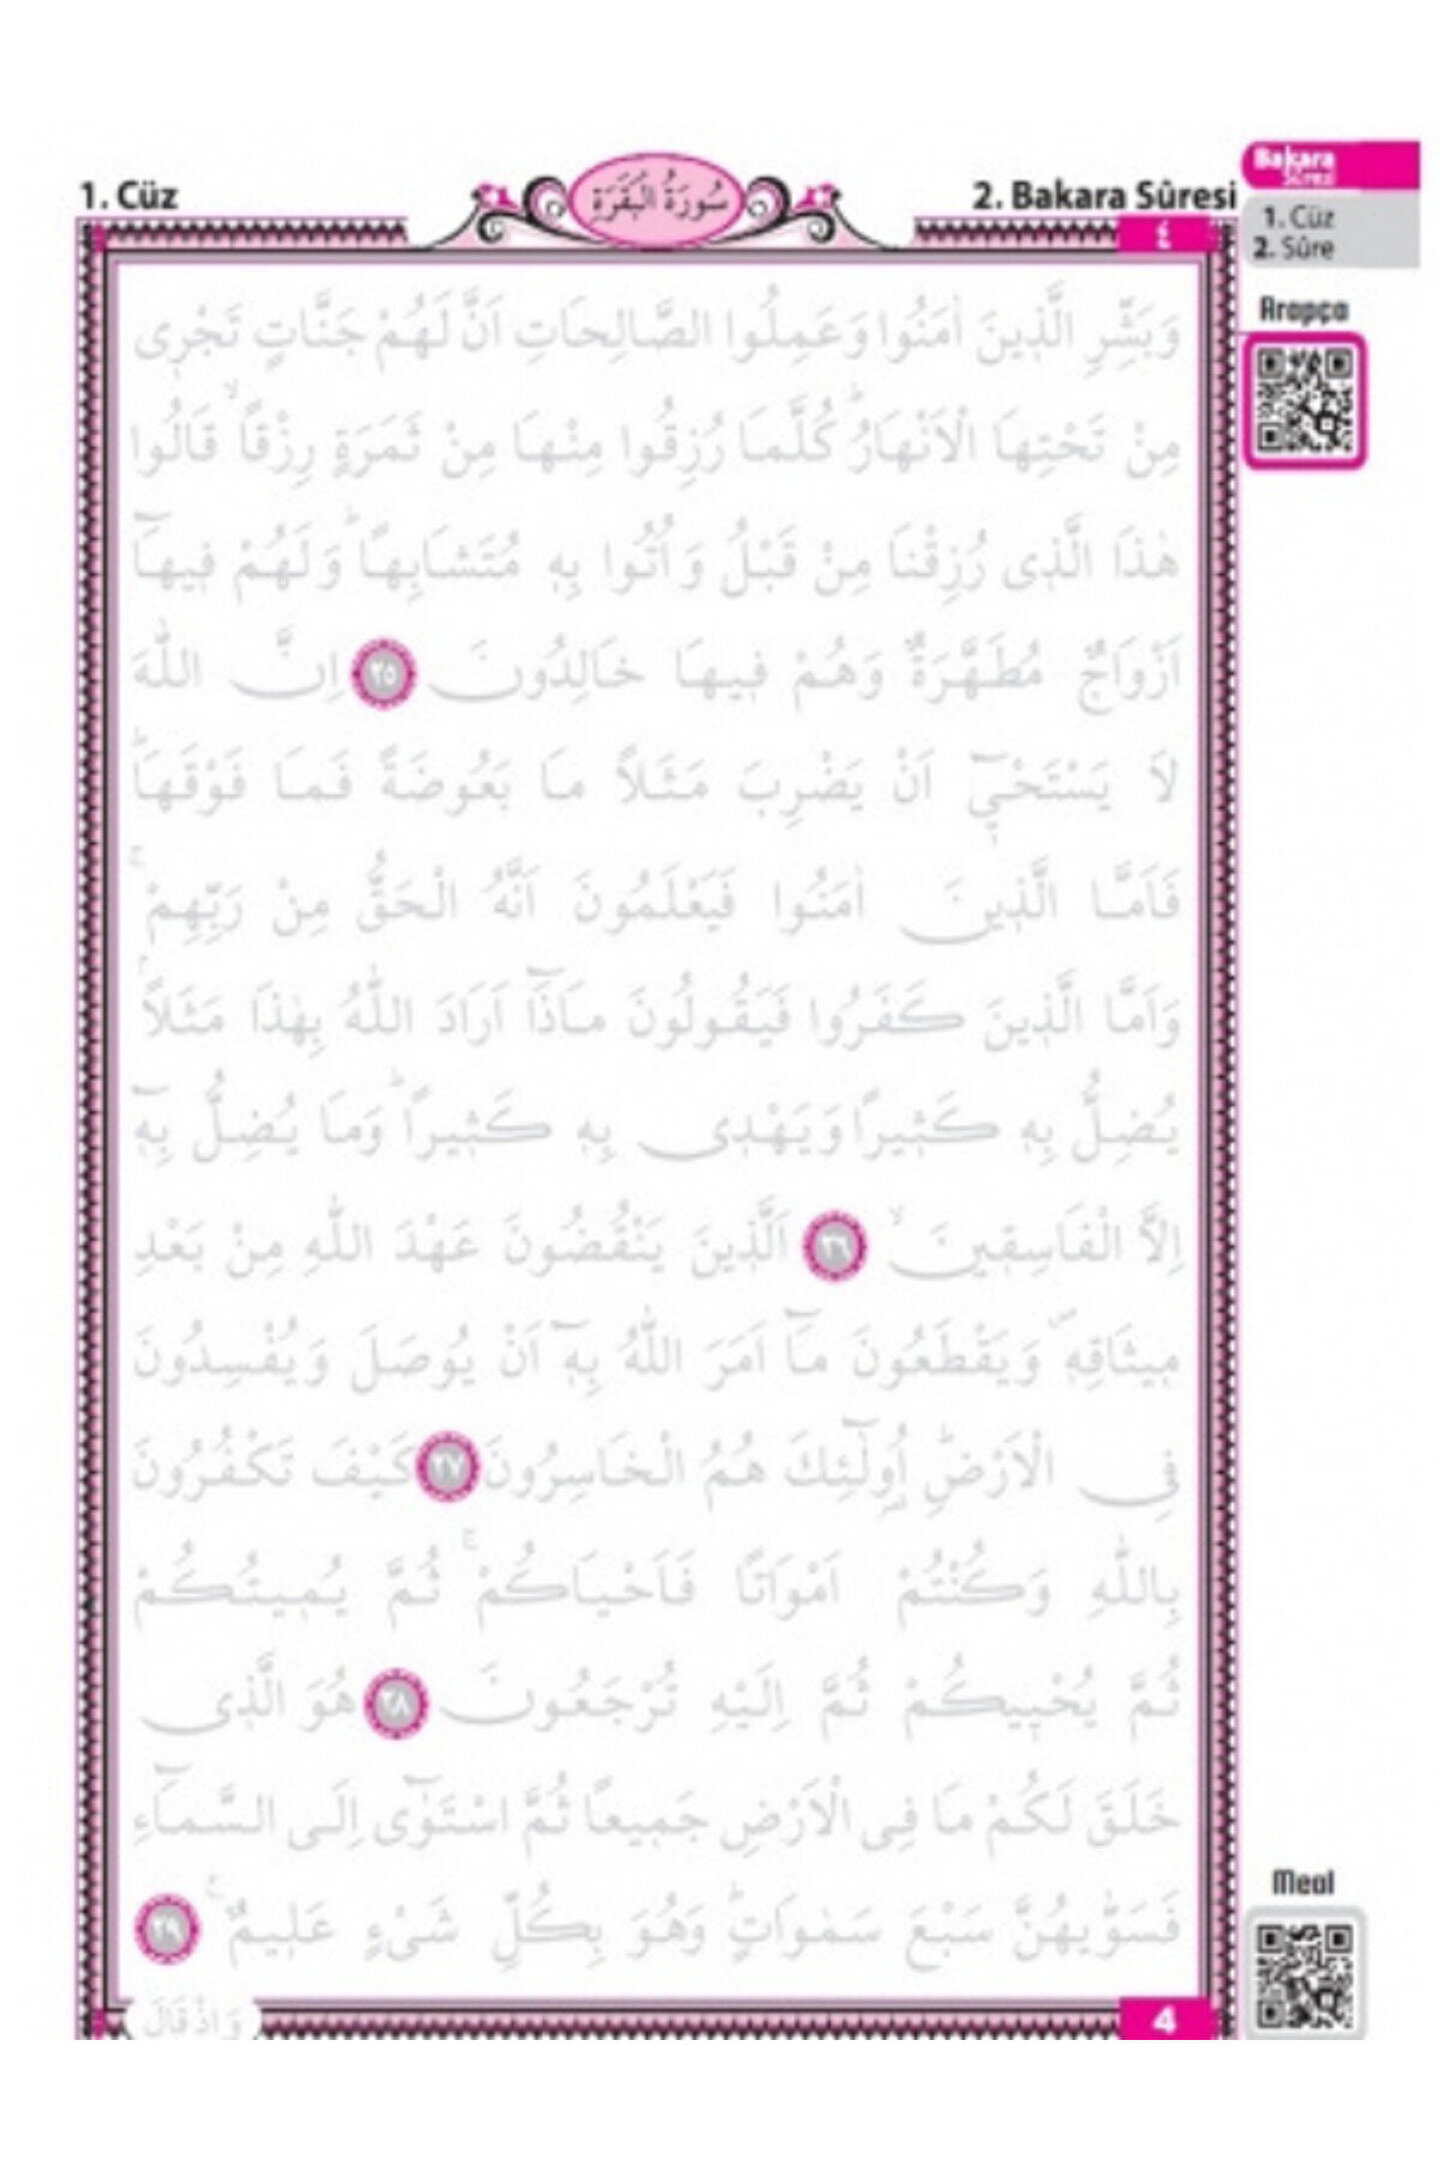 1. Cüz
سُورَةُ الْبَقَرَةِ
2. Bakara Sûresi
٤
Bakara
Sûresi
1. Cüz
2. Sûre
Arapça
وَبَشِّرِ الَّذ۪ينَ اٰمَنُوا وَعَمِلُوا الصَّالِحَاتِ اَنَّ لَهُمْ جَنَّاتٍ تَجْر۪ى
مِنْ تَحْتِهَا الْاَنْهَارُۜ كُلَّمَا رُزِقُوا مِنْهَا مِنْ ثَمَرَةٍ رِزْقًاۙ قَالُوا
هٰذَا الَّذ۪ى رُزِقْنَا مِنْ قَبْلُ وَاُتُوا بِه۪ مُتَشَابِهًاۜ وَلَهُمْ ف۪يهَٓا
اَزْوَاجٌ مُطَهَّرَةٌ وَهُمْ ف۪يهَا خَالِدُونَ ﴿٢٥﴾ اِنَّ اللّٰهَ
لَا يَسْتَحْي۪ٓ اَنْ يَضْرِبَ مَثَلًا مَا بَعُوضَةً فَمَا فَوْقَهَاۜ
فَاَمَّا الَّذ۪ينَ اٰمَنُوا فَيَعْلَمُونَ اَنَّهُ الْحَقُّ مِنْ رَبِّهِمْۚ
وَاَمَّا الَّذ۪ينَ كَفَرُوا فَيَقُولُونَ مَاذَٓا اَرَادَ اللّٰهُ بِهٰذَا مَثَلًاۢ
يُضِلُّ بِه۪ كَث۪يرًا وَيَهْد۪ى بِه۪ كَث۪يرًاۜ وَمَا يُضِلُّ بِه۪ٓ
اِلَّا الْفَاسِق۪ينَۙ ﴿٢٦﴾ اَلَّذ۪ينَ يَنْقُضُونَ عَهْدَ اللّٰهِ مِنْ بَعْدِ
م۪يثَاقِه۪ۖ وَيَقْطَعُونَ مَٓا اَمَرَ اللّٰهُ بِه۪ٓ اَنْ يُوصَلَ وَيُفْسِدُونَ
فِى الْاَرْضِۜ اُو۬لٰٓئِكَ هُمُ الْخَاسِرُونَ ﴿٢٧﴾ كَيْفَ تَكْفُرُونَ
بِاللّٰهِ وَكُنْتُمْ اَمْوَاتًا فَاَحْيَاكُمْۚ ثُمَّ يُم۪يتُكُمْ
ثُمَّ يُحْي۪يكُمْ ثُمَّ اِلَيْهِ تُرْجَعُونَ ﴿٢٨﴾ هُوَ الَّذ۪ى
خَلَقَ لَكُمْ مَا فِى الْاَرْضِ جَم۪يعًا ثُمَّ اسْتَوٰٓى اِلَى السَّمَٓاءِ
فَسَوّٰيهُنَّ سَبْعَ سَمٰوَاتٍۜ وَهُوَ بِكُلِّ شَىْءٍ عَل۪يمٌ۟ ﴿٢٩﴾
Meal
وَاِذْ قَالَ
4